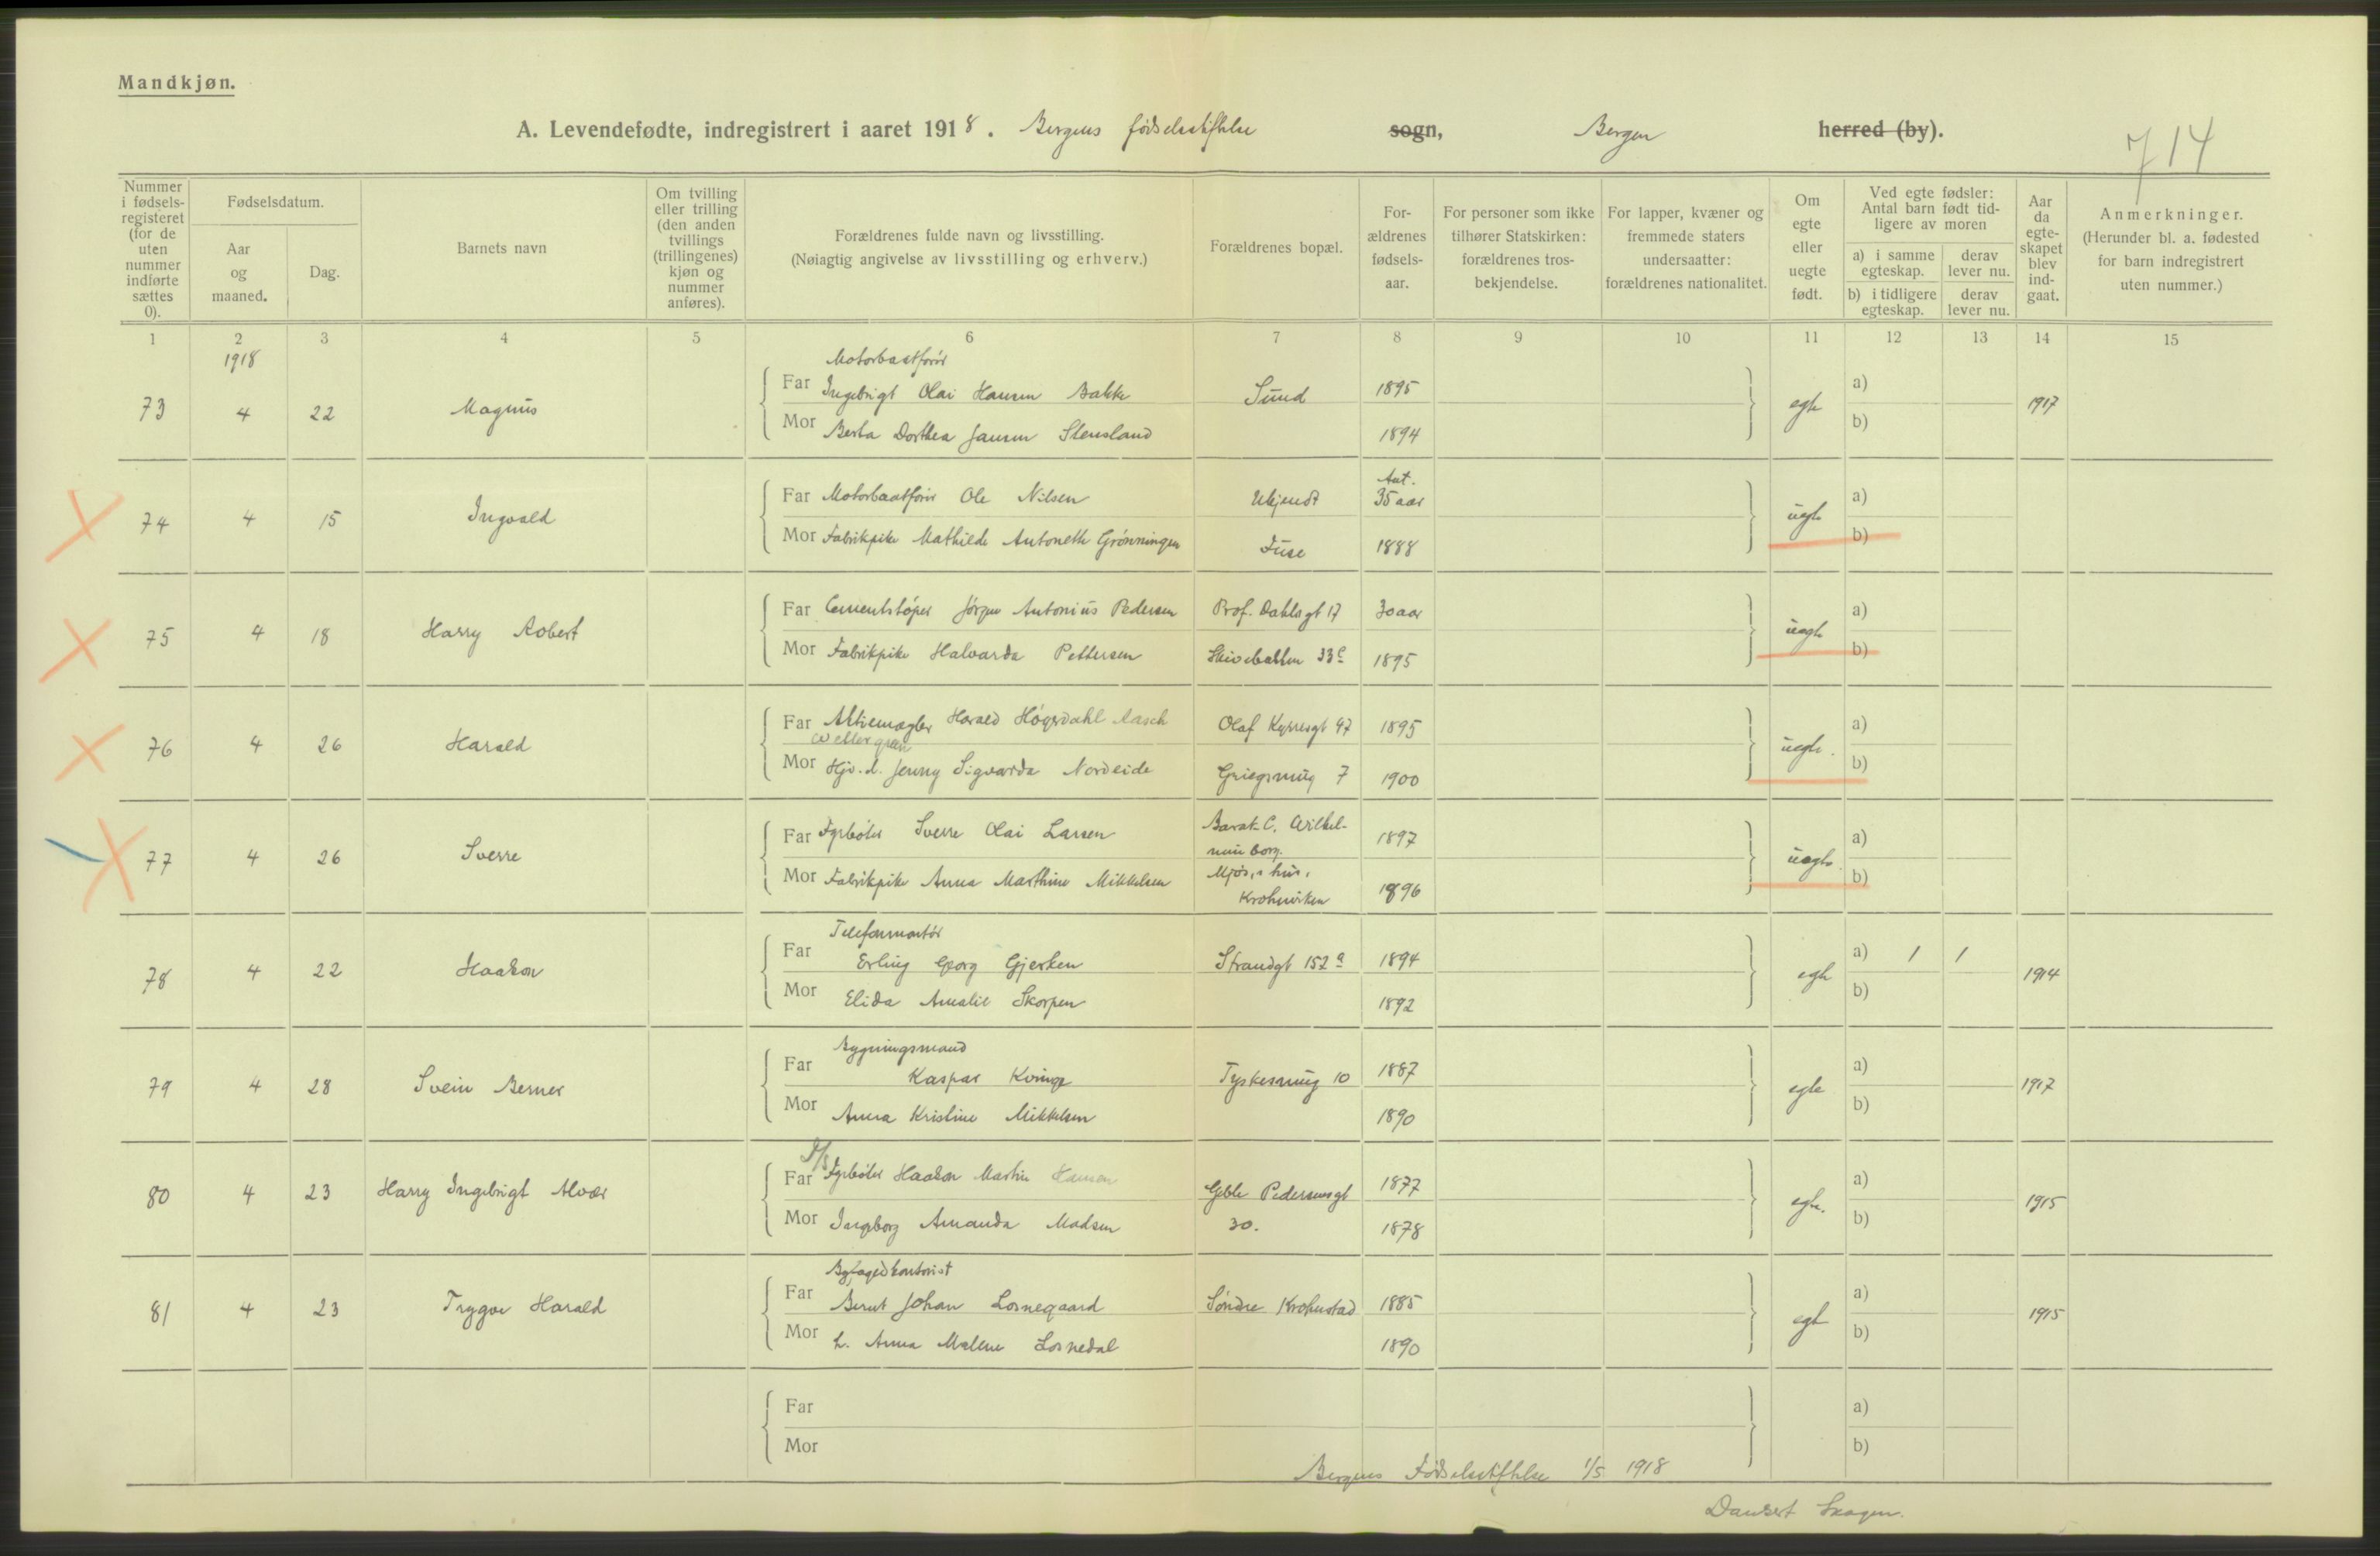 Mandkjøn.
A. Levendefødte, indregistrert i aaret 1918. Bergens fødselsstiftelse sogn, Bergen herred (by).
714
Nummer i fødsels-registeret (for de uten nummer indførte sættes 0).
Fødselsdatum.
Aar og maaned.
Dag.
Barnets navn
Om tvilling eller trilling (den anden tvillings (trillingenes) kjøn og nummer anføres).
Forældrenes fulde navn og livsstilling.
(Nøiagtig angivelse av livsstilling og erhverv.)
Forældrenes bopæl.
For-ældrenes fødsels-aar.
For personer som ikke tilhører Statskirken: forældrenes tros-bekjendelse.
For lapper, kvæner og fremmede staters undersaatter: forældrenes nationalitet.
Om egte eller uegte født.
Ved egte fødsler: Antal barn født tid-ligere av moren
a) i samme egteskap.
derav lever nu.
b) i tidligere egteskap.
derav lever nu.
Aar da egte-skapet blev ind-gaat.
Anmerkninger.
(Herunder bl. a. fødested for barn indregistrert uten nummer.)
1 2 3 4 5 6 7 8 9 10 11 12 13 14 15
1918
Motorbaatfører
73 4 22 Magnus Far Ingebrigt Olai Hansen Bakke Sund 1895 egte a) 1917
Mor Berta Dorthea Jansen Stensland 1894 b)
Ant.
74 4 15 Ingvald Far Motorbaatfører Ole Nilsen Ukjendt 35 aar uegte a)
Mor Fabrikpike Mathilde Antonette Grønningen Fuse 1888 b)
75 4 18 Harry Robert Far Cementstøper Jørgen Antonius Pedersen Prof. Dahlsgt 17 30 aar uegte a)
Mor Fabrikpike Halvarda Pettersen Skivebakken 33c 1895 b)
76 4 26 Harald Far Aktiemægler Harald Høgsdahl Aasch Olaf Kyrresgt 47 1895 uegte. a)
Wettergren
Mor Hjv. d. Jenny Sigvarda Nordeide Griegsmug 7 1900 b)
77 4 26 Sverre Far Fyrbøter Sverre Olai Larsen Barak C. Wilhel- 1897 uegte. a)
minborg.
Mor Fabrikpike Anna Marthine Mikkelsen Mjøs,s hus, 1896 b)
Krohnviken
Telefonmontør
78 4 22 Haakon Far Erling Georg Gjerken Strandgt 152 a 1894 egte a) 1 1 1914
Mor Elida Amalie Skorpen 1892 b)
Bygningsmand
79 4 28 Svein Berner Far Kaspar Kvinge Tyskesmug 10 1887 egte a) 1917
Mor Anna Kristine Mikkelsen 1890 b)
80 4 23 Harry Ingebrigt Alvær Far D/S Fyrbøter Haakon Martin Hansen Geble Pedersensgt 1877 egte. a) 1915
Mor Ingeborg Amanda Madsen 30. 1878 b)
Byfogedkontorist
81 4 23 Trygve Harald Far Bernt Johan Losnegaard Søndre Krohnstad 1885 egte a) 1915
Mor h. Anna Malene Losnedal 1890 b)
Far a)
Mor b)
Bergens Fødselsstiftelse 1/5 1918
Skagen.